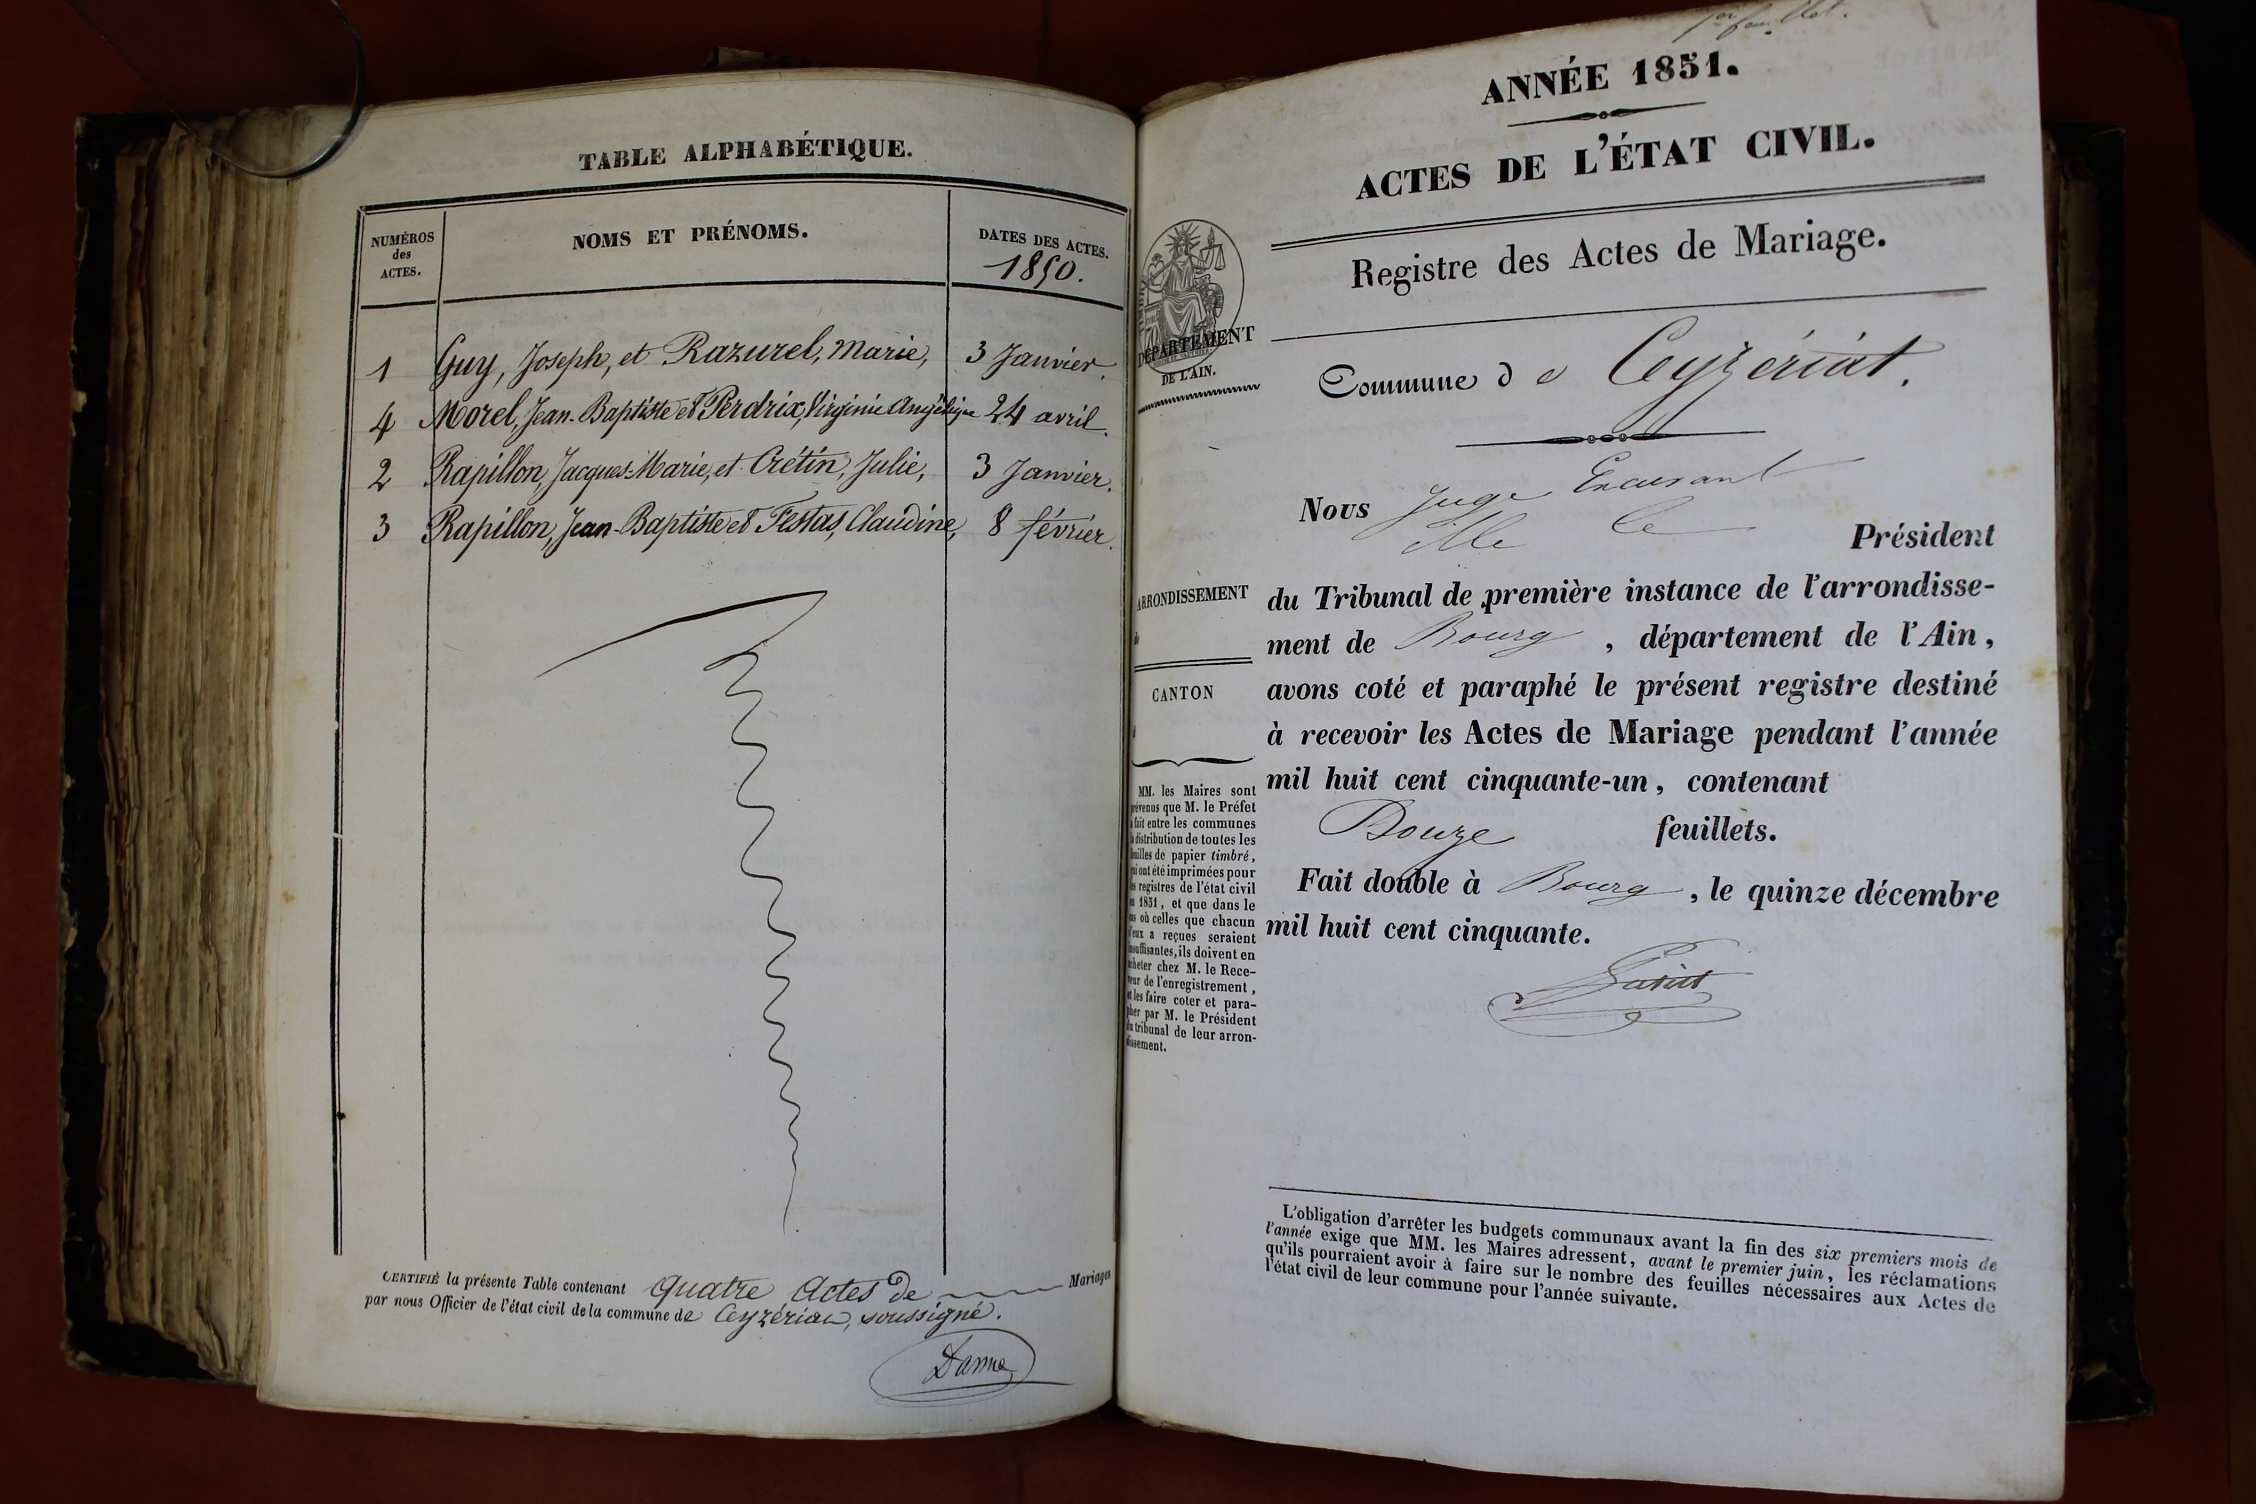 TABLE ALPHABÉTIQUE.
NUMÉROS
des
ACTES.
NOMS ET PRÉNOMS.
DATES DES ACTES.
1850.
1 Guy, Joseph, et Razurel, Marie, 3 Janvier.
4 Morel, Jean-Baptiste et Perdrix, Virginie Angélique 24 avril.
2 Rapillon, Jacques-Marie, et Crétin, Julie, 3 Janvier.
3 Rapillon, Jean-Baptiste et Festas, Claudine, 8 février.
CERTIFIÉ la présente Table contenant quatre actes de Mariages
par nous Officier de l'état civil de la commune de Ceyzériat, soussigné.
Darme
1er feuillet.
ANNÉE 1851.
ACTES DE L'ÉTAT CIVIL.
Registre des Actes de Mariage.
DÉPARTEMENT
DE L'AIN.
Commune de Ceyzériat.
Nous Juge
Mr le Président
ARRONDISSEMENT
de
CANTON
du Tribunal de première instance de l'arrondisse-
ment de Bourg, département de l'Ain,
avons coté et paraphé le présent registre destiné
à recevoir les Actes de Mariage pendant l'année
mil huit cent cinquante-un, contenant
Douze feuillets.
Fait double à Bourg, le quinze décembre
mil huit cent cinquante.
MM. les Maires sont
prévenus que M. le Préfet
a fait entre les communes
la distribution de toutes les
feuilles de papier timbré,
qui ont été imprimées pour
les registres de l'état civil
en 1851, et que dans le
cas où celles que chacun
d'eux a reçues seraient
insuffisantes, ils doivent en
acheter chez M. le Rece-
veur de l'enregistrement,
et les faire coter et para-
pher par M. le Président
du tribunal de leur arron-
dissement.
L'obligation d'arrêter les budgets communaux avant la fin des six premiers mois de
l'année exige que MM. les Maires adressent, avant le premier juin, les réclamations
qu'ils pourraient avoir à faire sur le nombre des feuilles nécessaires aux Actes de
l'état civil de leur commune pour l'année suivante.